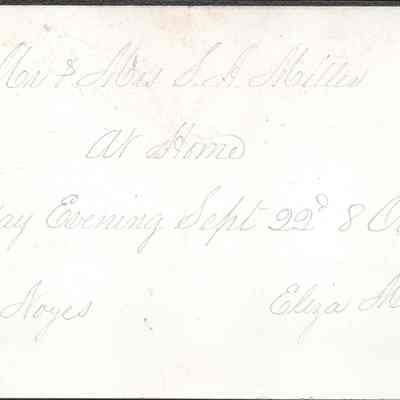 Mr & Mrs S. A. Miller
At Home
ay Evening Sept 22d 8 O
Noyes Eliza M